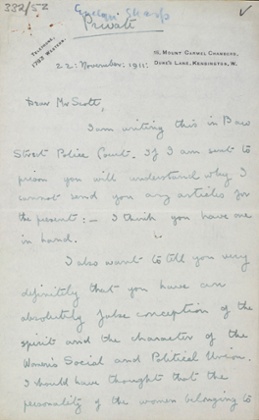 332/52
Evelyn Sharp
Private
Telephone,
1792 Western.
16, Mount Carmel Chambers,
Duke's Lane, Kensington, W.
22: November: 1911:
Dear Mr Scott,
I am writing this in Bow
Street Police Court. If I am sent to
prison you will understand why I
cannot send you any articles for
the present: — I think you have one
in hand.
I also want to tell you very
definitely that you have an
absolutely false conception of the
spirit and the character of the
Women's Social and Political Union.
I should have thought that the
personality of the women belonging to